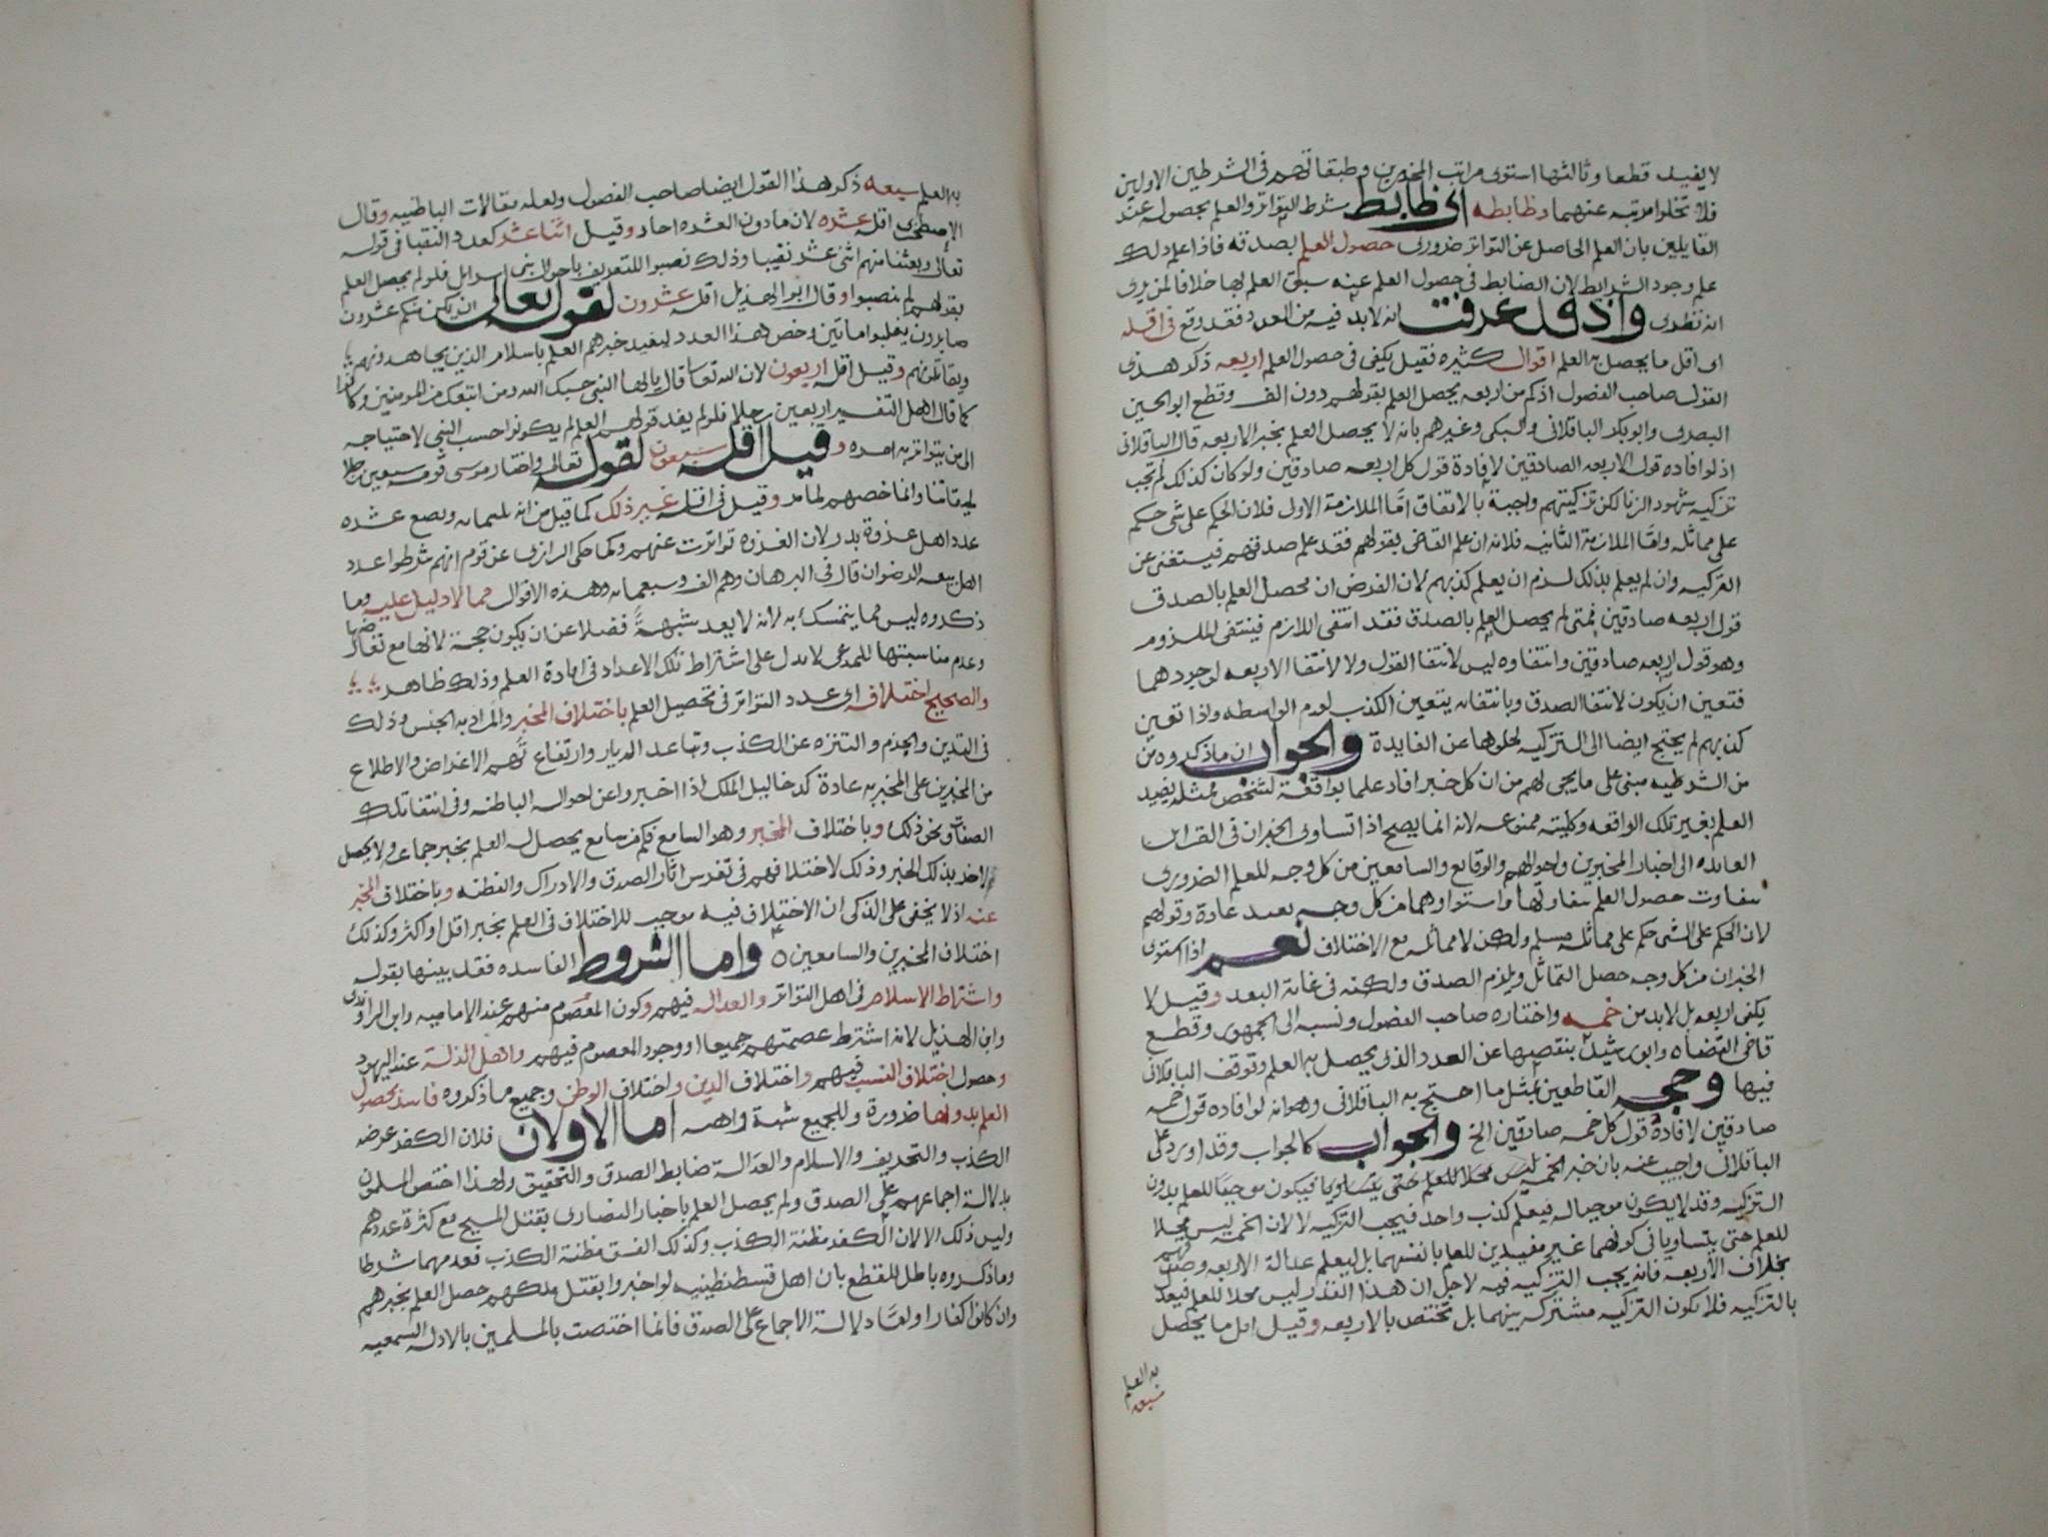 لا يفيد قطعا وثالثها استوى مراتب المخبرين وطبقاتهم في الشرطين الاولين
فلا تخلوا مرتبه عنهما وظابطه اى ظابط شرط التواتر والعلم بحصوله عند
القايلين بان العلم الحاصل عن التواتر ضرورى حصول العلم بصدقه فاذا علم ذلك
علم وجود الشرايط لان الضابط في حصول العلم عنه سبق العلم بها خلافا لمن يرى
انه نظرى واذ قد عرفت انه لا بد فيه من العدد فقد وقع في اقله
اى اقل ما يحصل به العلم اقوال كثيره فقيل يكفى في حصول العلم اربعه ذكر هذى
القول صاحب الفصول اذ كم من اربعه يحصل العلم بقولهم دون الف وقطع ابو الحسين
البصرى وابو بكر الباقلانى والسبكى وغيرهم بانه لا يحصل العلم بخبر الاربعه قال الباقلانى
اذ لو افاده قول الاربعه الصادقين لافادة قول كل اربعه صادقين ولو كان كذلك لم تجب
تزكيه شهود الزنا لكن تزكيتهم واجبة بالاتفاق امّا الملازمة الاولى فلان الحكم على شى حكم
على مماثله وامّا الملازمة الثانيه فلانه ان علم القاضى بقولهم فقد علم صدقهم فيستغنى عن
التزكيه وان لم يعلم بذلك لزم ان يعلم كذبهم لان الفرض ان محصل العلم بالصدق
قول اربعه صادقين فمتى لم يحصل العلم بالصدق فقد انتفى اللازم فينتفى الملزوم
وهو قول اربعه صادقين وانتفاوه ليس لانتفا القول ولا لانتفا الاربعه لوجودهما
فتعين ان يكون لانتفا الصدق وبانتفائه يتعين الكذب لعدم الواسطه واذا تعين
كذبهم لم يحتج ايضا الى التزكيه لخلوها عن الفايدة والجواب ان ما ذكروه من
من الشرطيه مبنى على ما يجى لهم من ان كل خبر افاد علما بواقعة لشخص فمثله يفيد
العلم بغير تلك الواقعه وكليته ممنوعه لانه انما يصح اذا تساوى الخبران في القراين
العايده الى اخبار المخبرين واحوالهم والوقايع والسامعين من كل وجه للعلم الضرورى
بتفاوت حصول العلم بتفاوتها واستواوهما من كل وجه بعيد عادة وقولهم
لان الحكم على الشى حكم على مماثله مسلم ولكن لا مماثله مع الاختلاف نعم اذا استوى
الخبران من كل وجه حصل التماثل ويلزم الصدق ولكنه في غاية البعد وقيل لا
يكفى اربعه بل لا بد من خمسه واختاره صاحب الفصول ونسبه الى الجمهور وقطع
قاضى القضاه وابو رشيد بنقصها عن العدد الذى يحصل به العلم وتوقف الباقلانى
فيها وحجه القاطعين بمثل ما احتج به الباقلانى وهو انه لو افاده قول خمسه
صادقين لافادة قول كل خمسه صادقين الخ والجواب كالجواب وقد اورد على
الباقلانى واجيب عنه بان خبر الخمسه ليس محلا للعلم حتى يتساويا فيكون موجبا للعلم بدون
التزكيه وقد لا يكون موجبا له فيعلم كذب واحد فيجب التزكيه لا لان الخمسه ليس محلا
للعلم حتى يتساويا في كونهما غير مفيدين للعلم بانفسهما بل ليعلم عدالة الاربعه وصدقهم
بخلاف الاربعه فانه يجب التزكيه فيه لاجل ان هذا القدر ليس محلا للعلم فيعدل
بالتزكيه فلا تكون التزكيه مشتركه بينهما بل تختص بالاربعه وقيل اقل ما يحصل
به العلم
سبعه
به العلم سبعه ذكر هذا القول ايضا صاحب الفصول ولعله مقالات الباطنيه وقال
الاصطخرى اقله عشره لان ما دون العشره احاد وقيل اثنا عشر كعدد النقبا في قوله
تعالى وبعثنا منهم اثنى عشر نقيبا وذلك نصبوا للتعريف باحوال بنى اسرايل فلو لم يحصل العلم
بقولهم لم ينصبوا وقال ابو الهذيل اقله عشرون لقوله تعالى ان يكن منكم عشرون
صابرون يغلبوا مأتين وخص هذا العدد ليفيد خبرهم العلم باسلام الذين يجاهدونهم
ويقاتلونهم وقيل اقله اربعون لان الله تعالى قال يا ايها النبى حسبك الله ومن اتبعك من المومنين وكانوا
كما قال اهل التفسير اربعين رجلا فلو لم يفد قولهم العلم لم يكونوا حسب النبى لاحتياجه
الى من يتواتر به امره وقيل اقله سبعون لقوله تعالى واختار موسى قومه سبعين رجلا
لميقاتنا وانما خصهم لما مر وقيل في اقله غير ذلك كما قيل من انه ثلثمايه وبضع عشره
عدد اهل غزوة بدر لان الغزوه تواترت عنهم وكما حكى الرازى عن قوم انهم شرطوا عدد
اهل بيعه الرضوان قال في البرهان وهم الف وسبعمايه وهذه الاقوال مما لا دليل عليه وما
ذكروه ليس مما يتمسك به لانه لا يعد شبهةً فضلا عن ان يكون حجة لانها مع تعارضها
وعدم مناسبتها للمدعى لا تدل على اشتراط تلك الاعداد في افادة العلم وذلك ظاهر
والصحيح اختلافه اى عدد التواتر في تحصيل العلم باختلاف المخبر والمراد به الجنس وذلك
في التدين والجزم والتنزه عن الكذب وتباعد الديار وارتفاع تهم الاغراض والاطلاع
من المخبرين على المخبر به عادة كدخاليل الملك اذا اخبروا عن احواله الباطنه وفي انتفا تلك
الصفات ونحو ذلك وباختلاف المخبر وهو السامع فكم من سامع يحصل له العلم بخبر جماعه ولا يحصل
لاخر بذلك الخبر وذلك لاختلافهم في تفرس اثار الصدق والادراك والفطنه وباختلاف المخبر
عنه اذ لا يخفى على الذكى ان الاختلاف فيه موجب للاختلاف في العلم بخبر اقل او اكثر وكذلك
اختلاف المخبرين والسامعين واما الشروط الفاسده فقد بينها بقوله
واشتراط الاسلام في اهل التواتر والعداله فيهم وكون المعصوم منهم عند الاماميه وابن الراوندى
وابن الهذيل لانه اشترط عصمتهم جميعا او وجود المعصوم فيهم واهل الذلة عند اليهود
وحصول اختلاف النسب فيهم واختلاف الدين واختلاف الوطن وجميع ما ذكروه فاسد لحصول
العلم بدونها ضرورة وللجميع شبه واهيه اما الاولان فلان الكفر عرضه
الكذب والتحريف والاسلام والعدالة ضابط الصدق والتحقيق ولهذا اختص المسلمون
بدلالة اجماعهم على الصدق ولم يحصل العلم باخبار النصارى بقتل المسيح مع كثرة عددهم
وليس ذلك الا لان الكفر مظنة الكذب وكذلك الفسق مظنة الكذب فعدمهما شرط
وما ذكروه باطل للقطع بان اهل قسطنطينيه لو اخبروا بقتل ملكهم حصل العلم بخبرهم
وان كانوا كفارا ولعا دلالة الاجماع على الصدق فانما اختصت بالمسلمين بالادله السمعيه